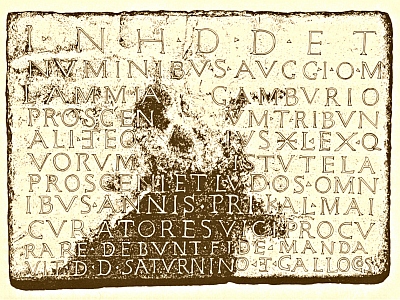 I·N·H·D·D·E·T
NVMINIBVS·AVGG·I·O·M
L·AMMIA GAMBVRIO
PROSCEN VM·TRIBVN
ALI·EQ IVS·X·L·EX·Q
VORVM IS·TVTELA
PROSCENI·ET·LVDOS·OMN
IBVS·ANNIS·PRI·KAL·MAI
CVRATORES·VICI·PROCV
RARE·DEBVNT·FIDE·MANDA
VIT·D·D·SATVRNINO·ET·GALLO·COS